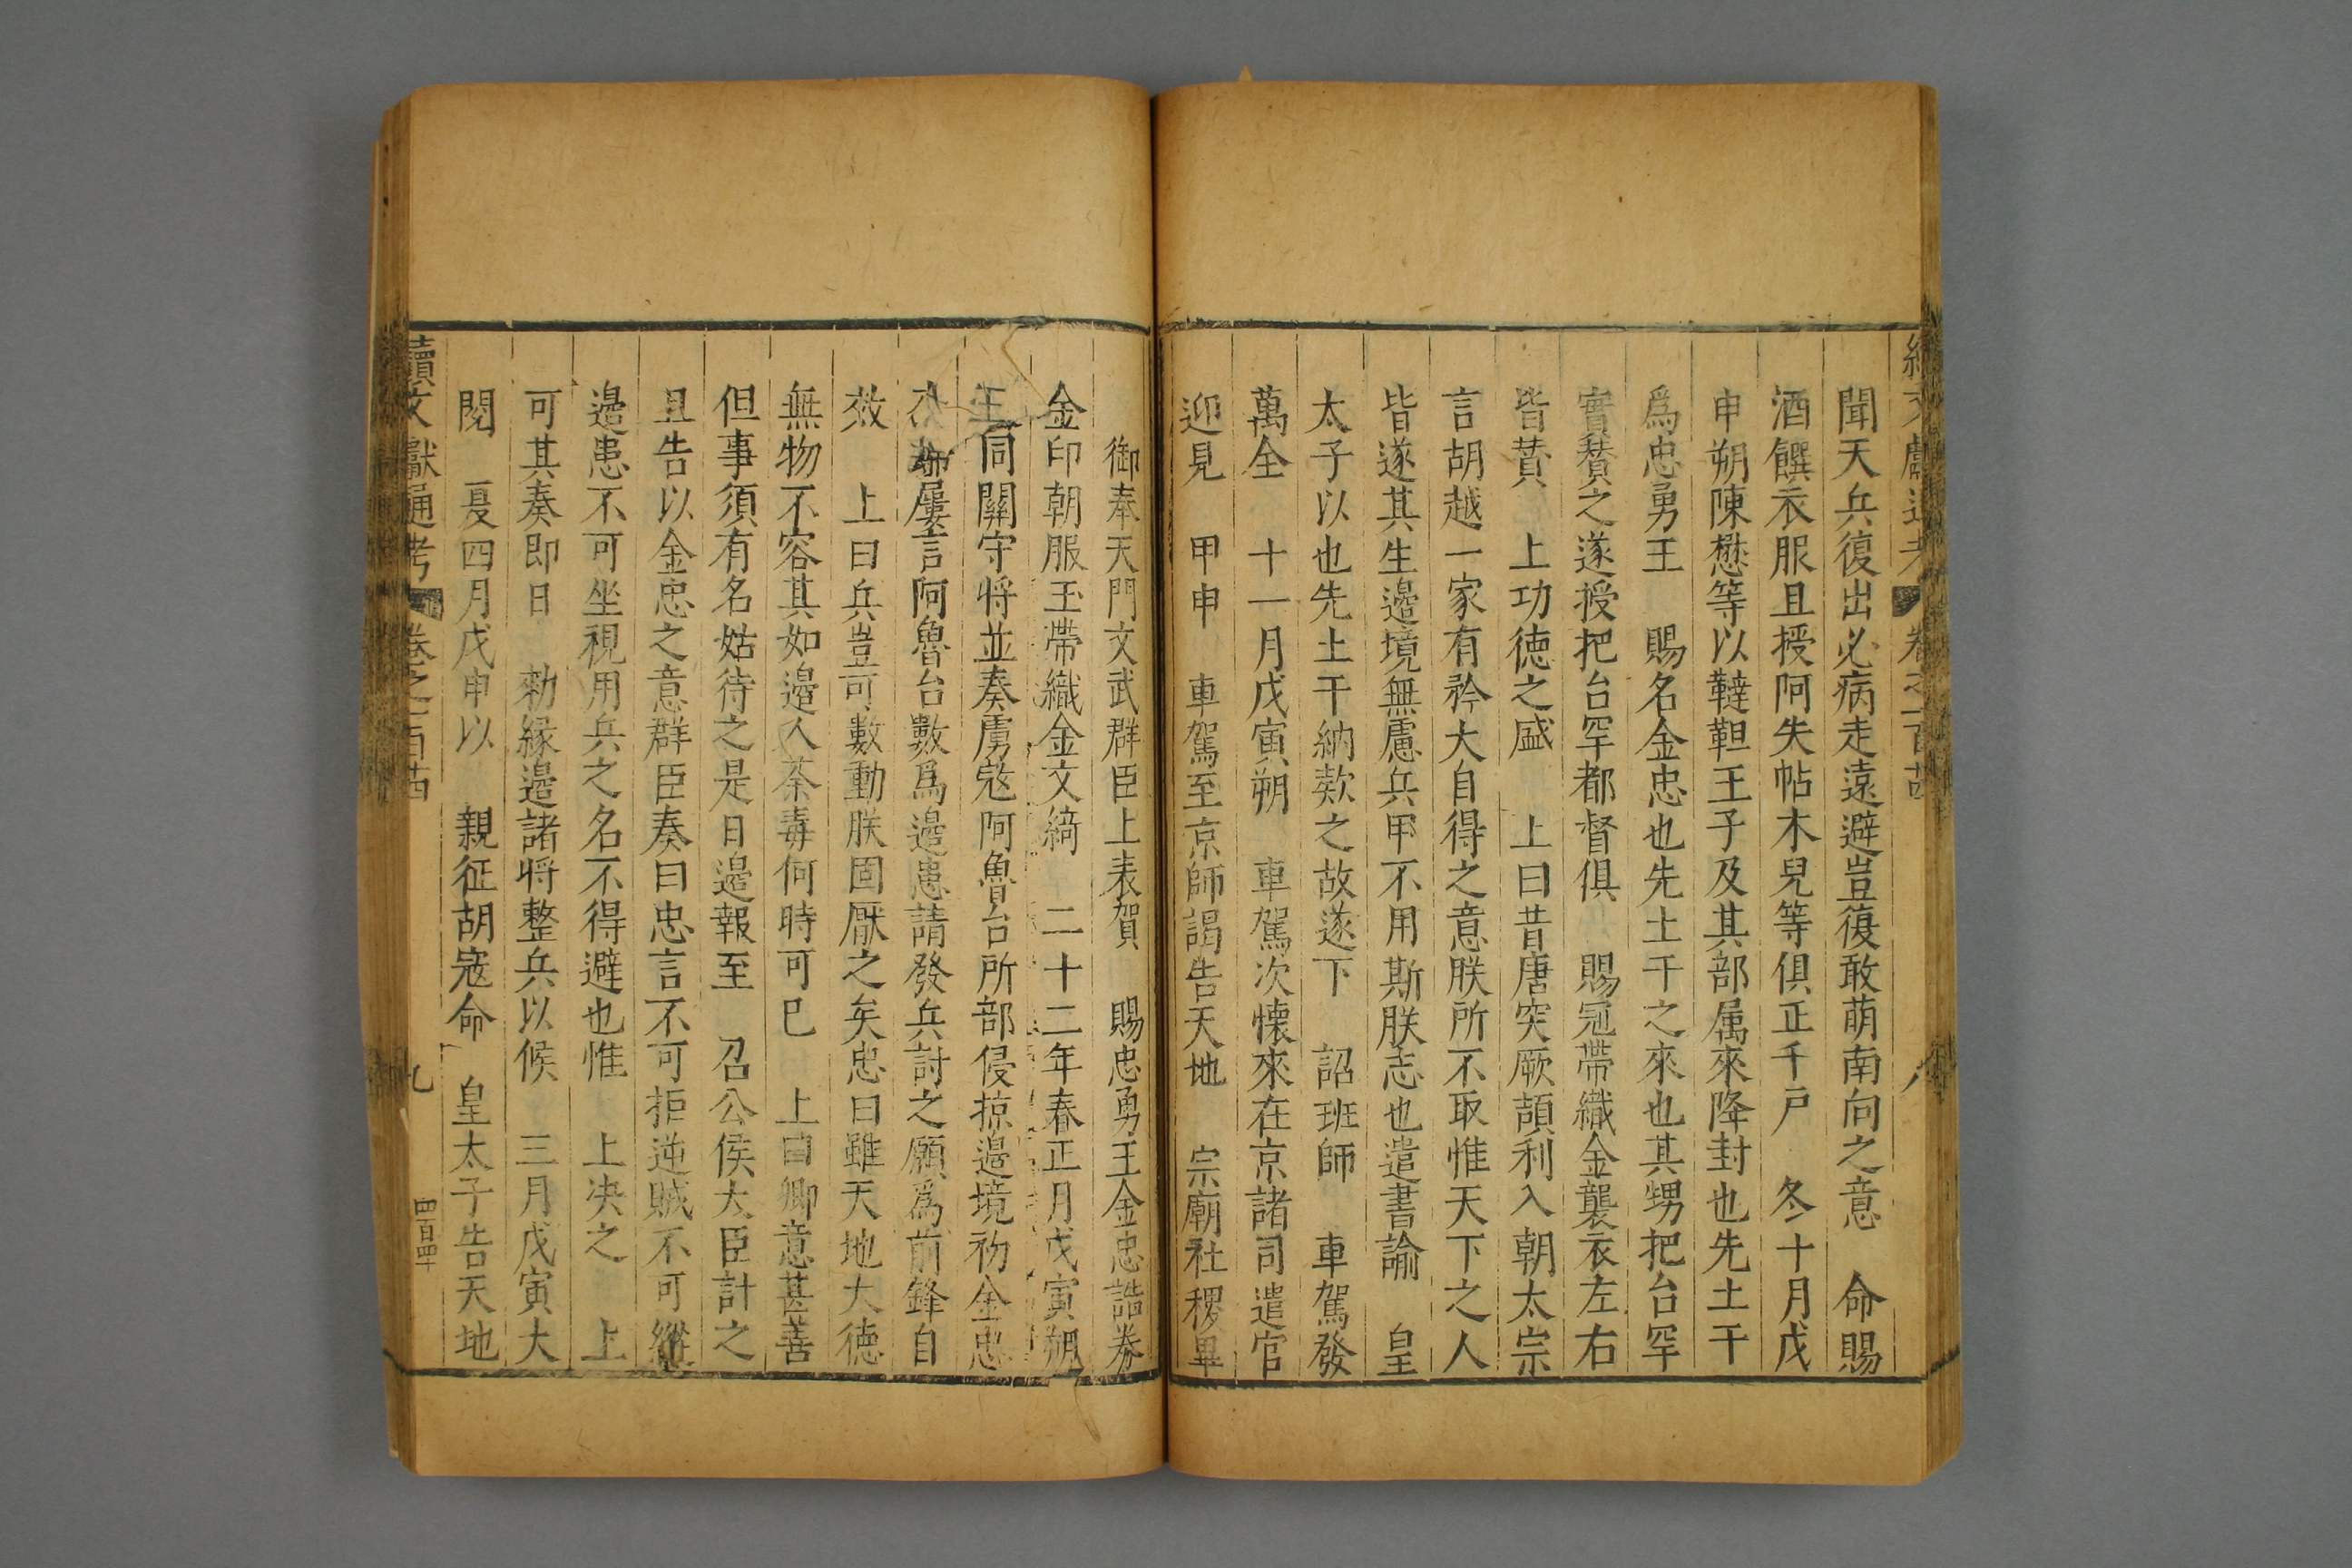 聞天兵復出必病走遠避豈復敢萌南向之意　命賜
酒饌衣服且授阿失帖木兒等俱正千戶　冬十月戊
申朔陳懋等以韃靼王子及其部属來降封也先土干
爲忠勇王　賜名金忠也先土干之來也其甥把台罕
實賛之遂授把台罕都督俱　賜冠帶織金襲衣左右
皆賛　上功德之盛　上曰昔唐突厥頡利入朝太宗
言胡越一家有矜大自得之意朕所不取惟天下之人
皆遂其生邊境無慮兵甲不用斯朕志也遣書諭　皇
太子以也先土干納欵之故遂下　詔班師　車駕發
萬全　十一月戊寅朔　車駕次懷來在京諸司遣官
迎見　甲申　車駕至京師謁告天地　宗廟社稷畢
御奉天門文武群臣上表賀　賜忠勇王金忠誥券
金印朝服玉帶織金文綺　二十二年春正月戊寅朔
同開守将並奏虜寇阿魯台所部侵掠邊境初金忠
屢言阿魯台數爲邊患請發兵討之願爲前鋒自
效　上曰兵豈可數動朕固厭之矣忠曰雖天地大德
無物不容其如邊人荼毒何時可已　上曰卿意甚善
但事須有名姑待之是日邊報至　召公侯大臣計之
且告以金忠之意群臣奏曰忠言不可拒逆賊不可縱
邊患不可坐視用兵之名不得避也惟　上决之　上
可其奏即日　勑縁邊諸将整兵以候　三月戊寅大
閱　夏四月戊申以　親征胡寇命　皇太子告天地
續文獻通考　卷之二百　九　四百四十